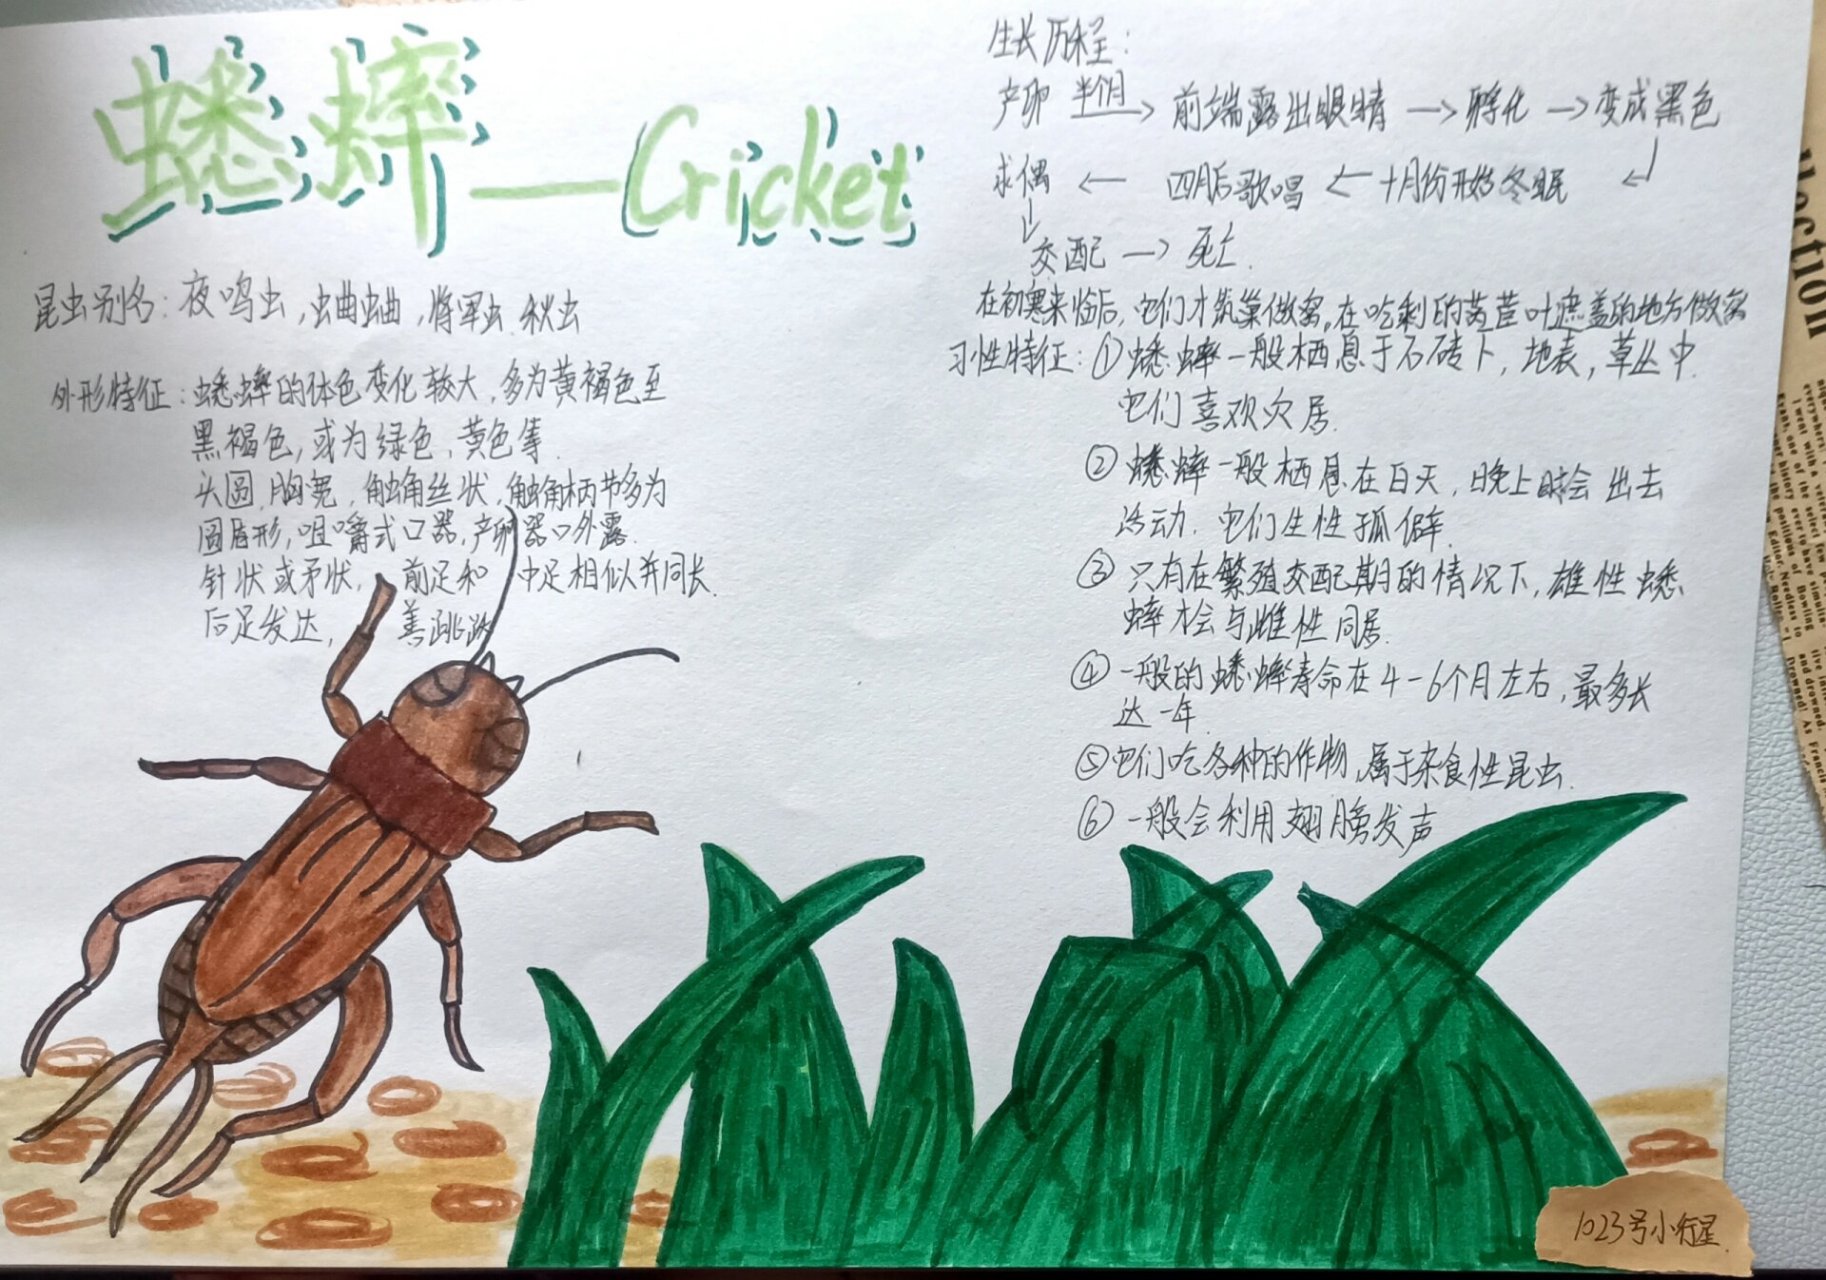 蟋蟀——Cricket
昆虫别名：夜鸣虫，虫曲虫曲，将军虫.秋虫
外形特征：蟋蟀的体色变化较大，多为黄褐色至
黑褐色，或为绿色、黄色等.
头圆，胸宽，触角丝状，触角柄节多为
圆盾形，咀嚼式口器，产卵器口外露.
针状或矛状，前足和中足相似并同长.
后足发达，善跳跃
生长历程：
产卵 半个月→ 前端露出眼睛 → 孵化 → 变成黑色
求偶 ← 四月后歌唱 ← 十月份开始冬眠 ↙
↓
交配 → 死亡.
在初寒来临后，它们才筑巢做窝。在吃剩的莴苣叶遮盖的地方做窝
习性特征：①蟋蟀一般栖息于石砖下，地表，草丛中.
它们喜欢穴居.
②蟋蟀一般栖息在白天，晚上时会出去
活动.它们生性孤僻.
③只有在繁殖交配期的情况下，雄性蟋
蟀才会与雌性同居.
④一般的蟋蟀寿命在4-6个月左右，最多长
达一年.
⑤它们吃各种的作物，属于杂食性昆虫.
⑥一般会利用翅膀发声
1023号小行星.
llection